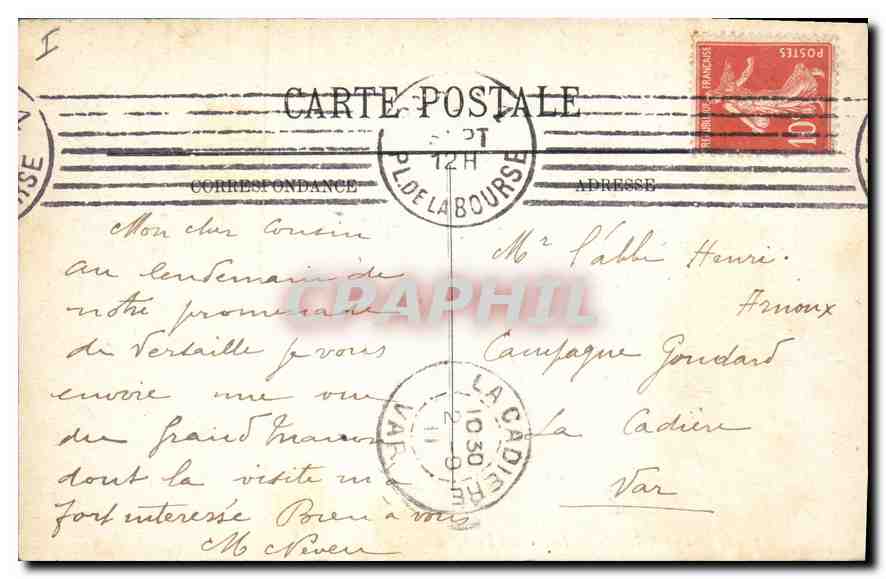 I
CARTE POSTALE
SEPT
12H
PL. DE LA BOURSE
RSE
POSTES
REPUBLIQUE FRANÇAISE
10
CORRESPONDANCE
ADRESSE
Mon cher Cousin
au lendemain de
notre promenade
de Versaille je vous
envoie une vue
du Grand Trianon
dont la visite m'a
fort interessé Bien à vous
M Neveu
Mr l'abbé Henri
Arnoux
Campagne Goudard
La Cadière
Var
LA CADIERE
10 30
2 - 9
11
VAR
CPAPHIL